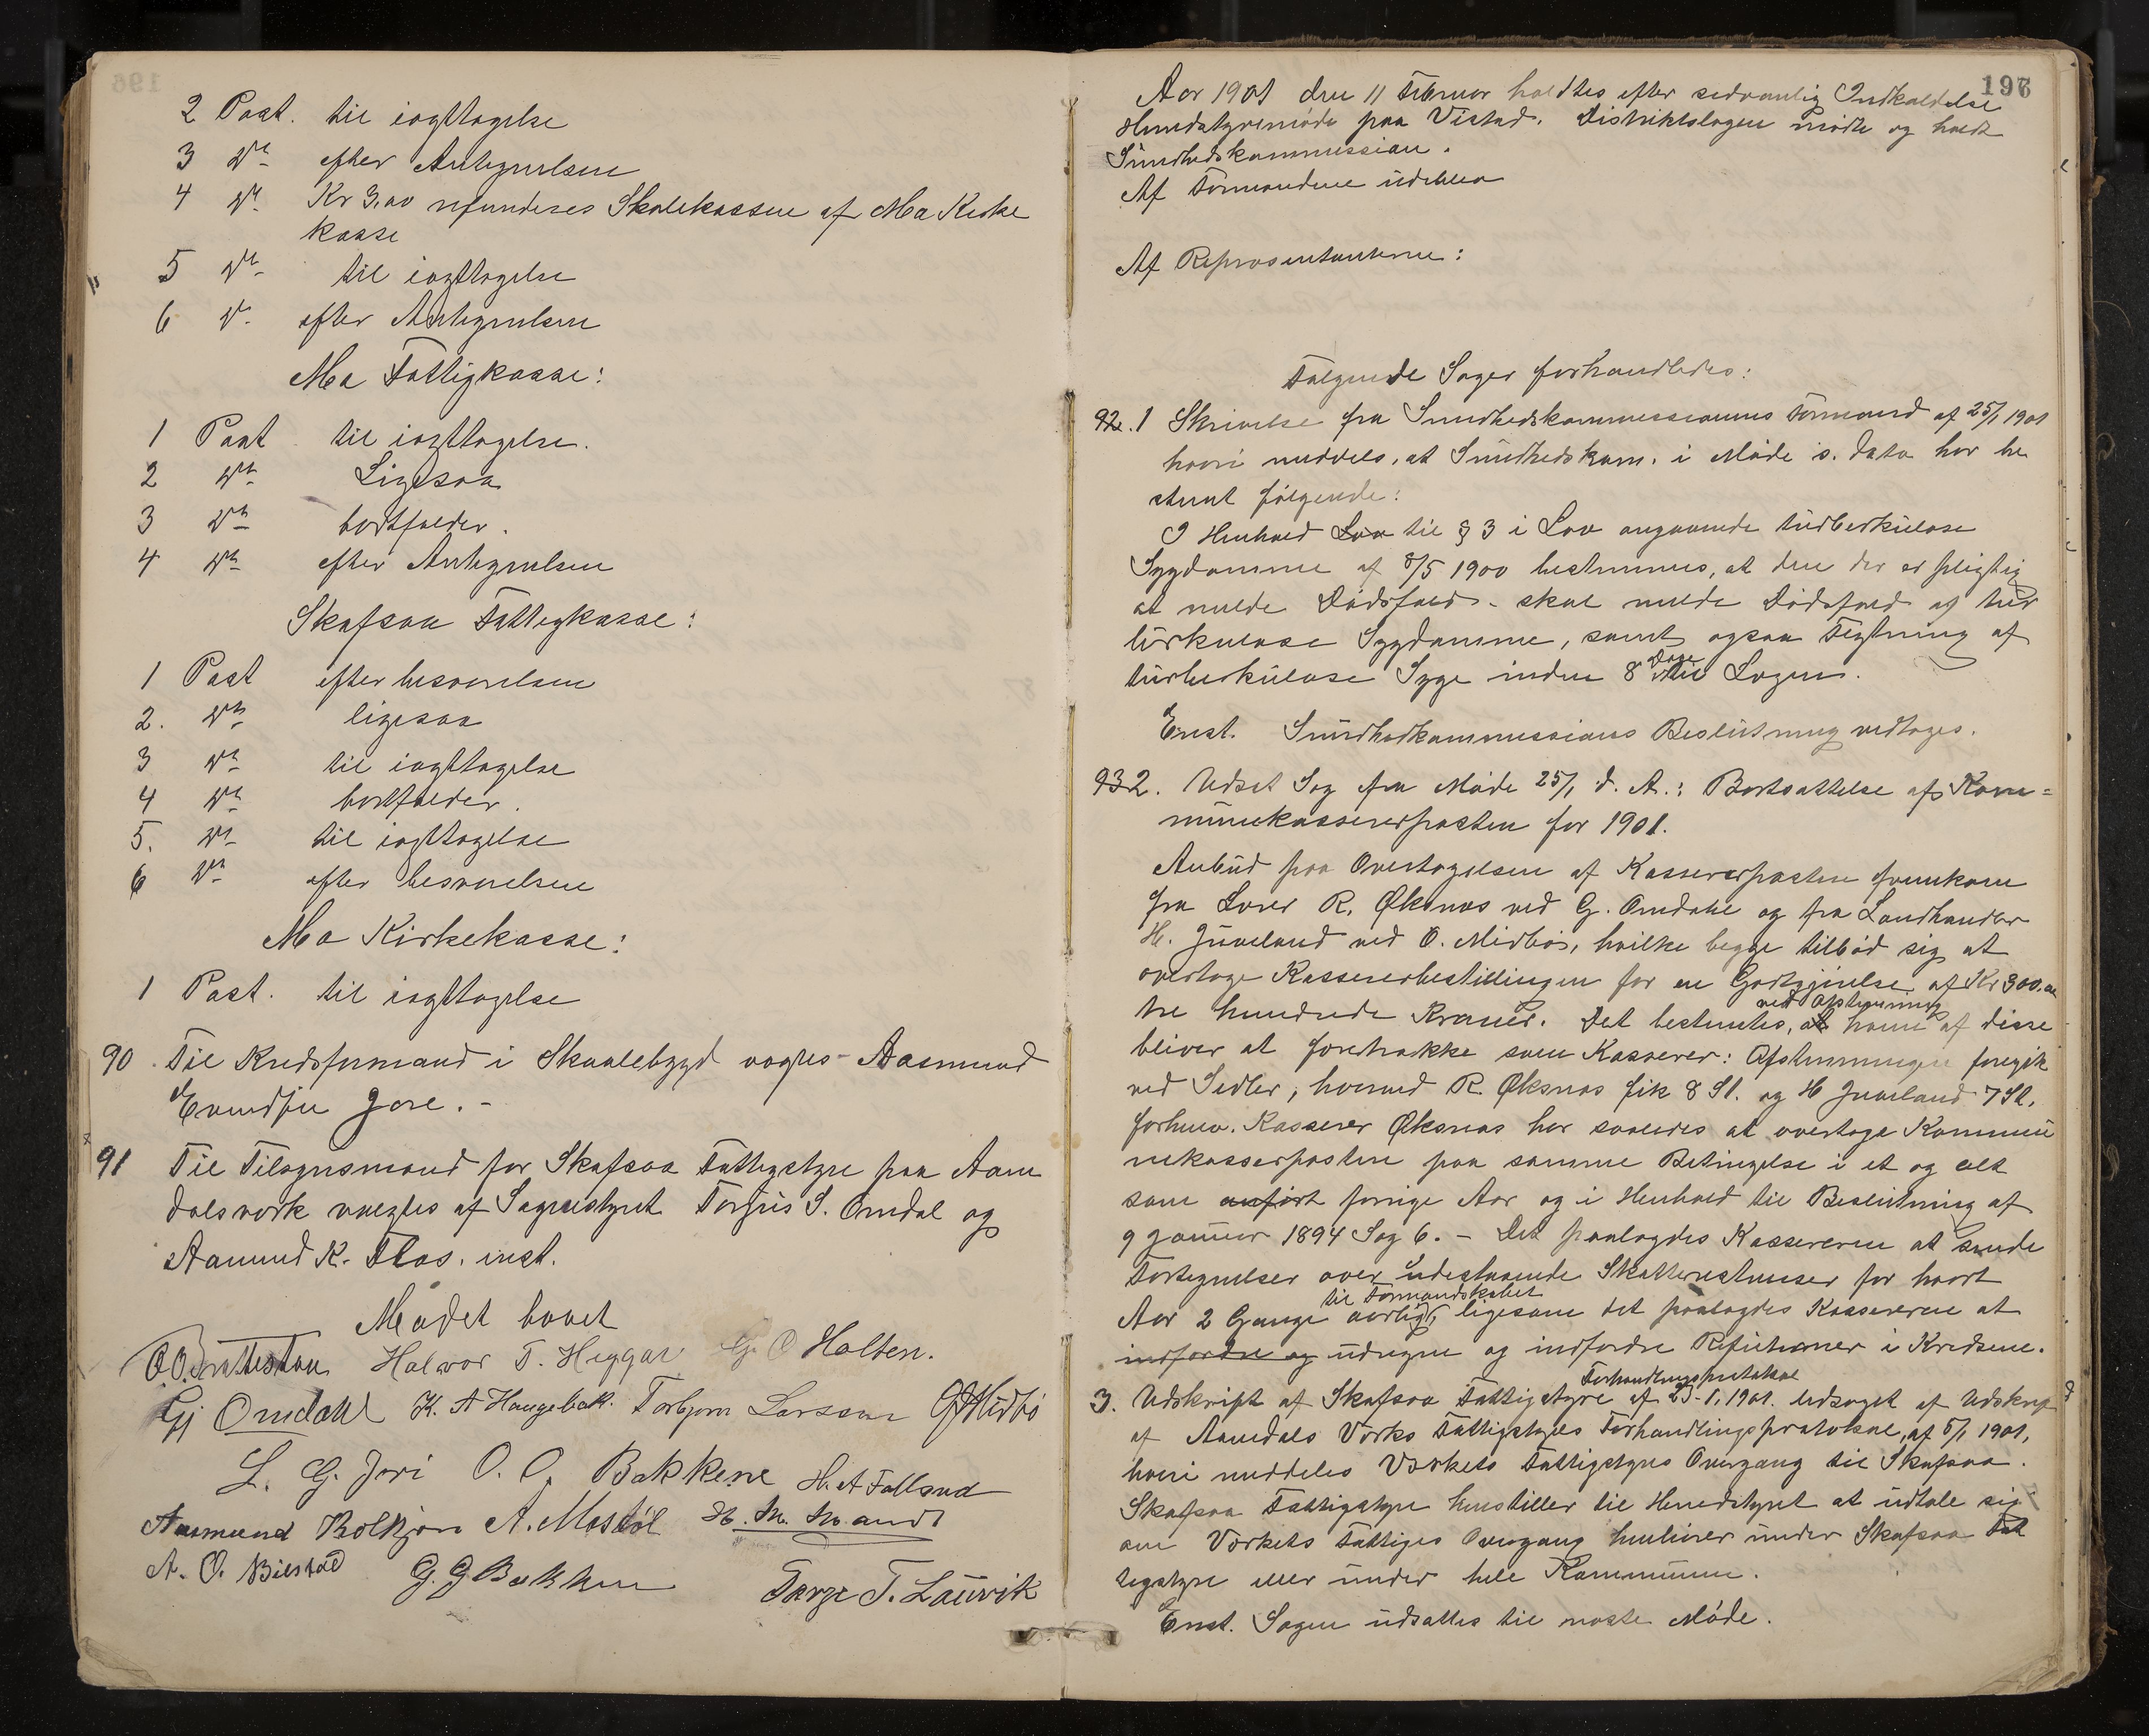 2 Post. til iagttagelse
3 Do efter Antegnelsen
4 Do Kr 3,00 refunderes Skolekassen af Mo Kirke
kasse
5 Do til iagttagelse
6 Do efter Antegnelsen
Mo Fattigkasse:
1 Post til iagttagelse.
2 Do Ligesaa
3 Do bortfalder.
4 Do efter Antegnelsen
Skafsaa Fattigkasse:
1 Post efter besvarelsen
2. Do ligesaa
3 Do til iagttagelse
4 Do bortfalder.
5. Do til iagttagelse
6 Do efter besvarelsen
Mo Kirkekasse:
1 Post. til iagttagelse
90. Til Kredsformand i Skaalebygd valgtes Aasmund
Evendsen Jore. -
91 Til Tilsynsmand for Skafsaa Fattigstyre paa Aam
dalsverk valgtes af Sognestyret Torjus S. Omdal og
Aamund K. Flaa. enst.
Mødet hævet
Halvor T. Heggar G. O Holten.
Gj Omdahl K. A Haugebak. Torbjørn Larsson O J Midbø
L. G. Jori O. O. Bakkene H. A Folland
Aasmund Bolkjøn A. Mostøl H. M. Mandt
A. O. Bilstad G. G Bakken Targe T. Lauvik
197
Aar 1901 den 11 Februar holdtes efter sedvanlig Indkaldelse
Herredstyremøde paa Vistad. Distriktslægen mødte og holdt
Sundhedskommission.
Af Formændene udeblev
Af Repræsentanterne:
Følgende Sager forhandledes:
92. 1 Skrivelse fra Sundhedskommissionens Formand af 25/1 1901
hvori meddeles, at Sundhedskom. i Møde s. Dato har be
stemt følgende:
I Henhold Lov til § 3 i Lov angaaende tuberkuløse
Sygdomme af 8/5 1900 bestemmes, at den der er pligtig
at melde Dødsfald - skal melde Dødsfald af tur
berkuløse Sygdomme, samt ogsaa Flytning af
turberkuløse Syge inden 8 Dage til Lægen.
Enst. Sundhedkommissions Beslutning vedtages.
93 2. Udsat Sag fra Møde 25/1 d. A.: Bortsættelse af Kom=
munekassererposten for 1901.
Anbud paa Overtagelsen af Kassererposten fremkom
fra Lærer R. Øksnæs ved G. Omdahl og fra Landhandler
H. Juveland ved O. Midbø, hvilke begge tilbød sig at
overtage Kassererbestillingen for en Godtgjørelse af Kr 300,00
tre hundrede Kroner. Det bestemtes, ved Afstemning at hvem af disse
bliver at foretrække som Kasserer: Afstemningen foregik
ved Sedler, hvorved R. Øksnæs fik 8 St. og H Juveland 7 St.
forhenv. Kasserer Øksnæs har saaledes at overtage Kommu
nekasserposten paa samme Betingelse i et og alt
som anført forrige Aar og i Henhold til Beslutning af
9 Januar 1894 Sag 6. - Det paalagdes Kassereren at sende
Fortegnelser over udestaaende Skatterestanser for hvert
Aar 2 Gange aarlig til Formandskabet, ligesom det paalagdes Kassereren at
indfordre og udregne og indfordre Refusioner i Kredsene.
3. Udskrift af Skafsaa Fattigstyre Forhandlingsprotokol af 23-1, 1901. ledsaget af Udskrift
af Aamdals Værks Fattigstyres Forhandlingsprotokol, af 5/1 1901,
hvori meddeles Værkets Fattigstyres Overgang til Skafsaa.
Skafsaa Fattigstyre henstiller til Herredstyret at udtale sig
om Værkets Fattiges Overgang henhører under Skafsaa Fat
tigstyre eller under hele Kommunen.
Enst. Sagen udsættes til næste Møde.